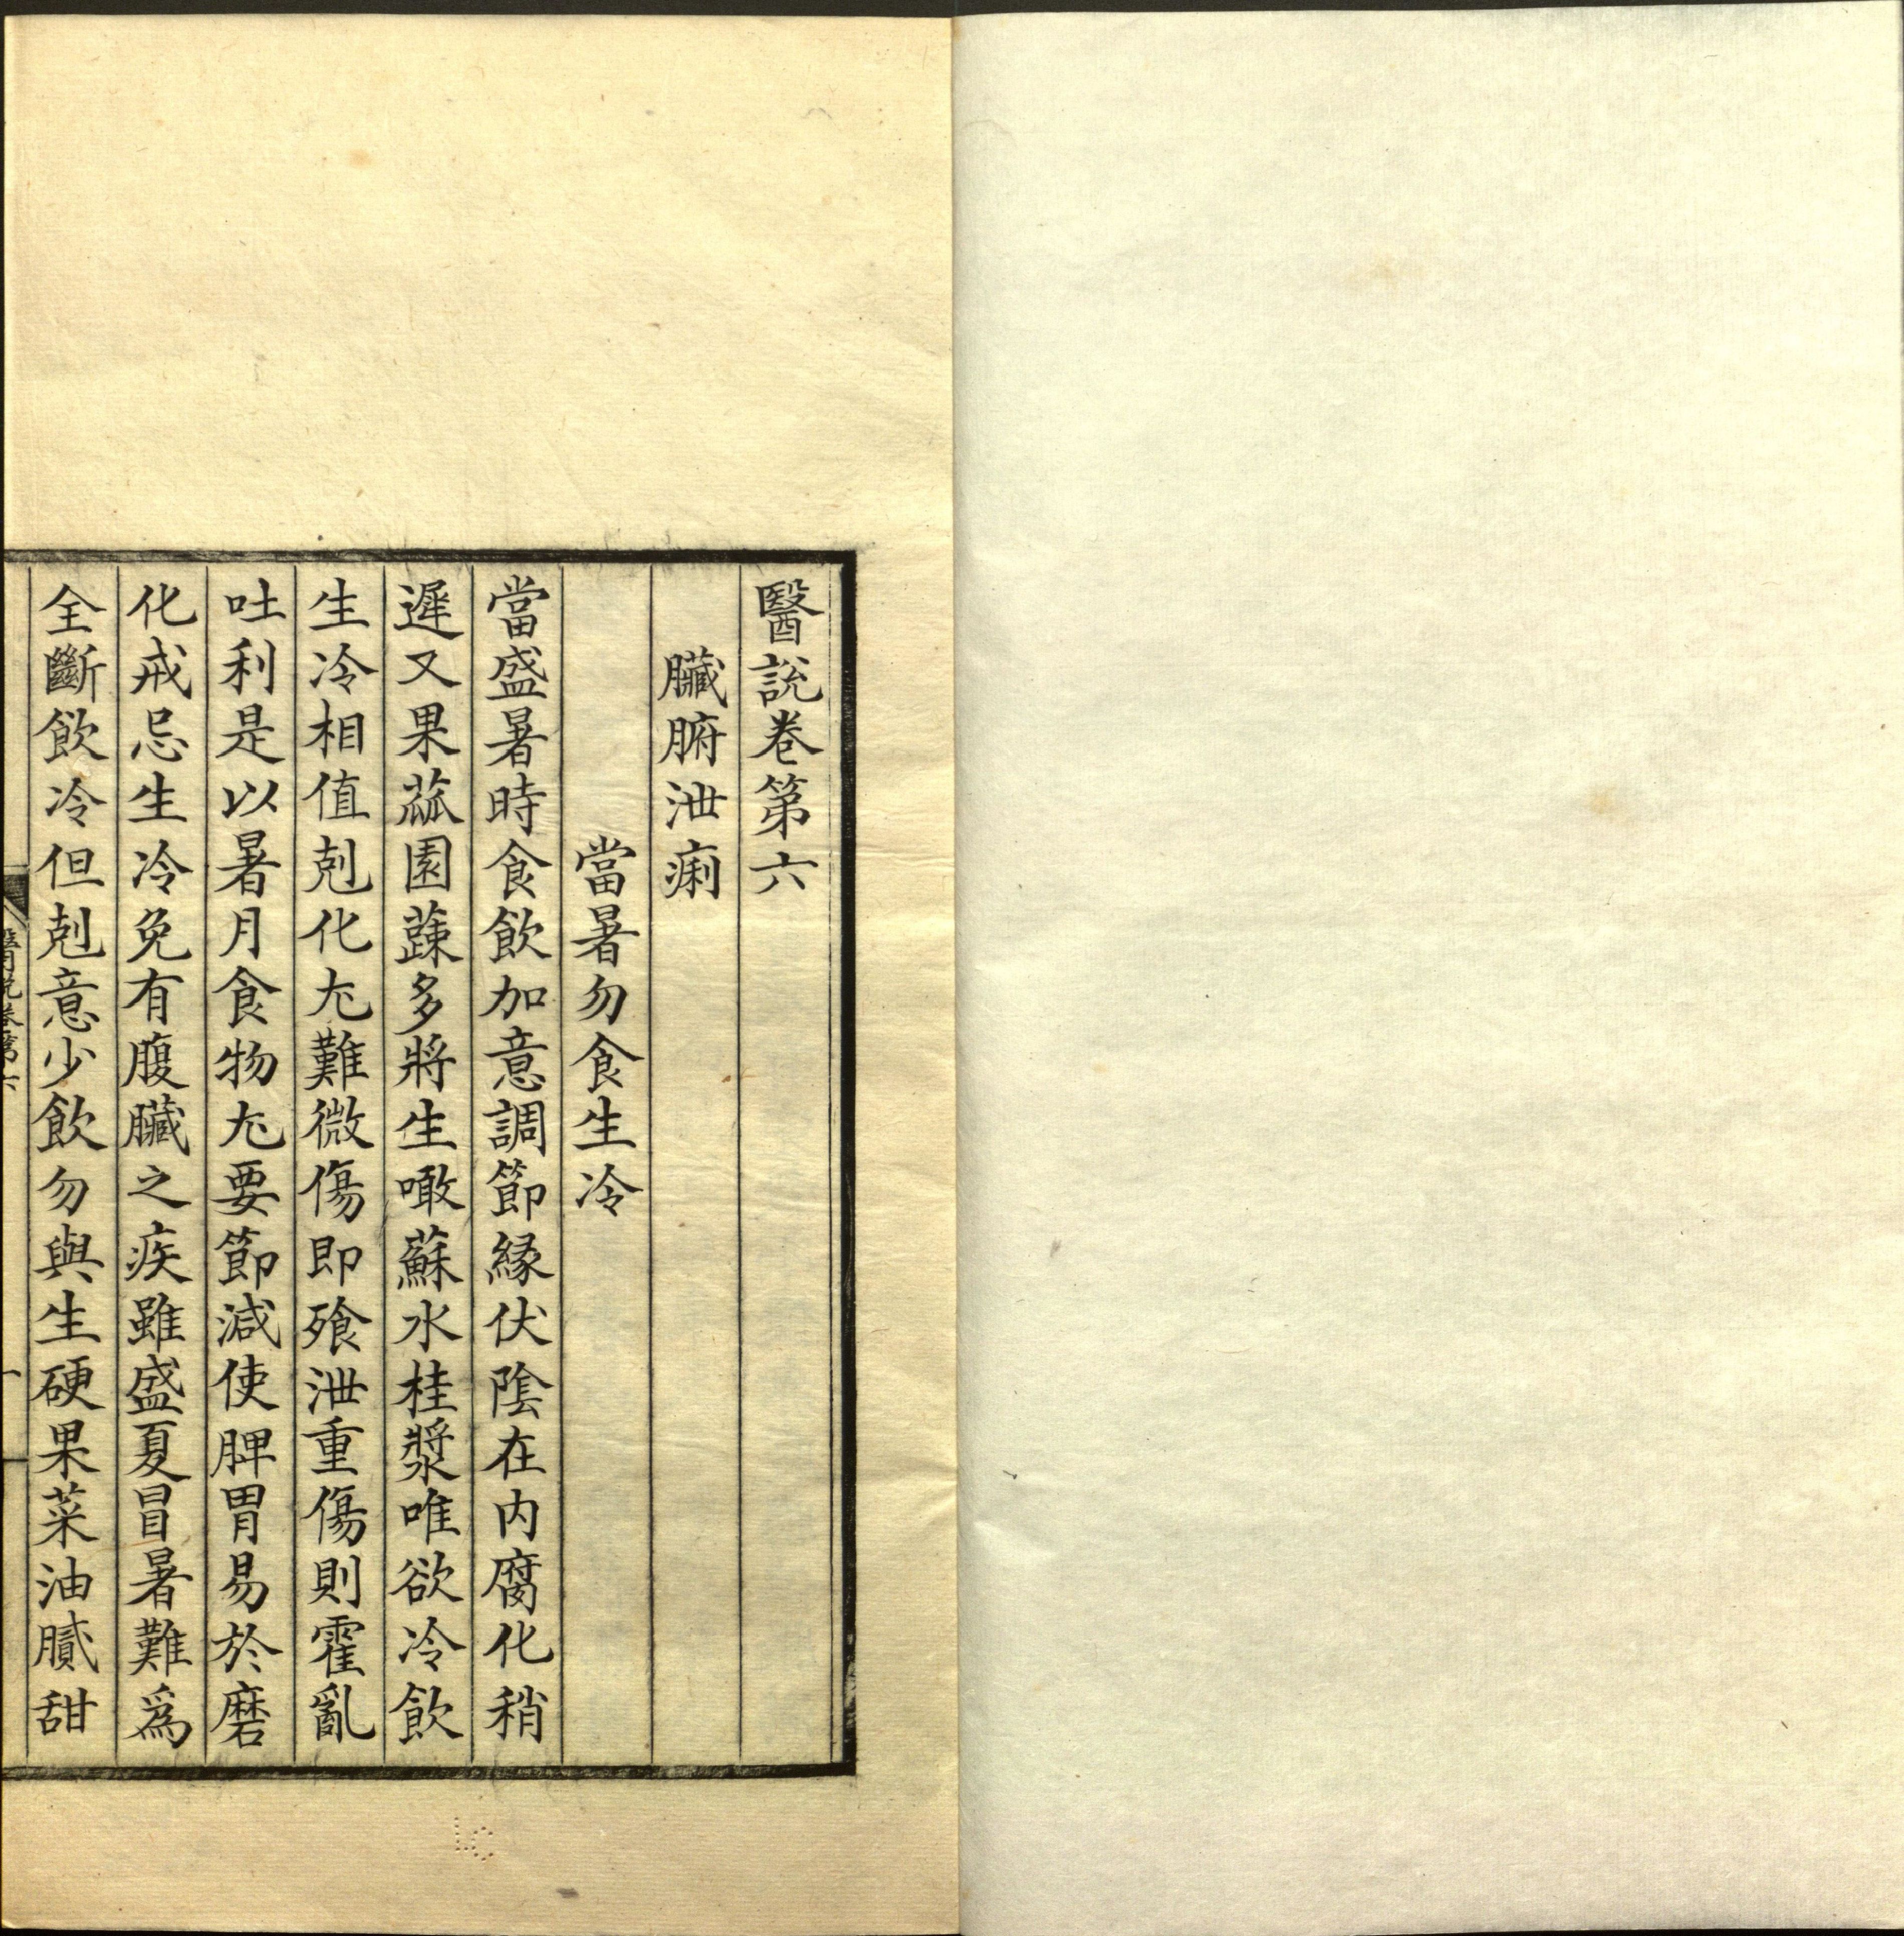 醫說卷第六
臟腑泄痢
當暑勿食生冷
當盛暑時食飲加意調節緣伏陰在内腐化稍
遲又果蓏園蔬多將生噉蘇水桂漿唯欲冷飲
生冷相值剋化尤難微傷即飱泄重傷則霍亂
吐利是以暑月食物尤要節減使脾胃易於磨
化戒忌生冷免有腹臟之疾雖盛夏冒暑難爲
全斷飲冷但剋意少飲勿與生硬果菜油膩甜
醫說卷第六
一
LC